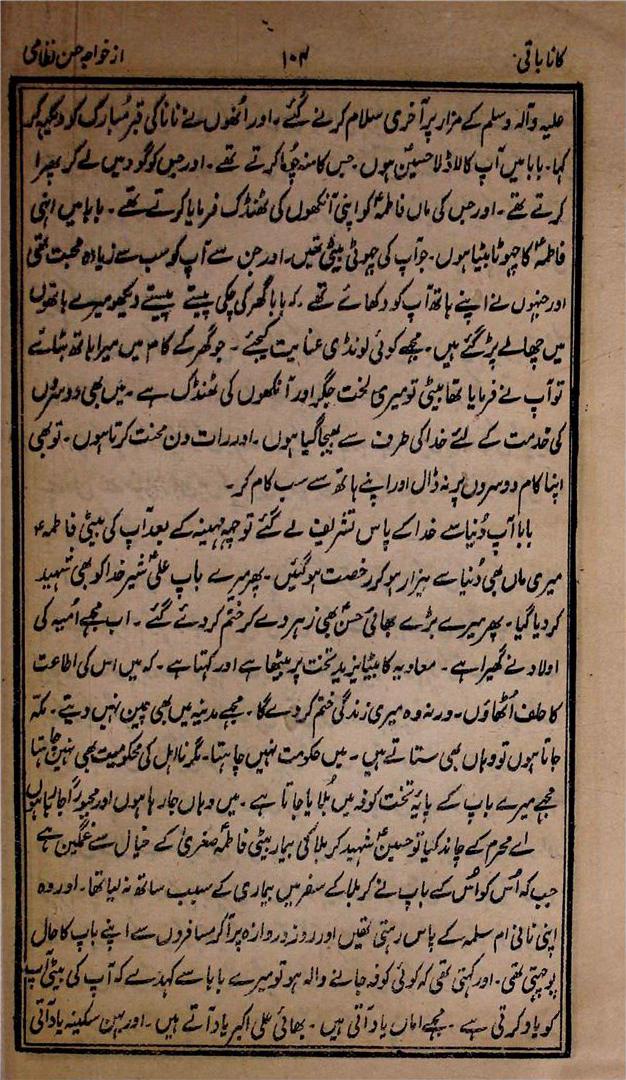 کانا باتی
۱۰۴
از خواجہ حسن نظامی
علیہ وآلہ وسلم کے مزار پر آخری سلام کرنے گئے۔ اور اُنھوں نے نانا کی قبر مُبارک کو دیکھ کر
کہا۔ بابا میں آپ کا لاڈلا حسینؑ ہوں۔ جس کا منہ چُوما کرتے تھے۔ اور جس کو گود میں لے کر پھرا
کرتے تھے۔ اور جس کی ماں فاطمہؑ کو اپنی آنکھوں کی ٹھنڈک فرمایا کرتے تھے۔ بابا میں اپنی
فاطمہؑ کا چھوٹا بیٹا ہوں۔ جو آپ کی چھوٹی بیٹی تھیں۔ اور جن سے آپ کو سب سے زیادہ محبت تھی
اور جنہوں نے اپنے ہاتھ آپ کو دکھائے تھے۔ کہ بابا گھر کی چکی پیستے پیستے دیکھو میرے ہاتھوں
میں چھالے پڑ گئے ہیں۔ مجھے کوئی لونڈی عنایت کیجئے۔ جو گھر کے کام میں میرا ہاتھ بٹائے
تو آپ نے فرمایا تھا بیٹی تو میری لخت جگر اور آنکھوں کی ٹھنڈک ہے۔ میں بھی دوسروں
کی خدمت کے لئے خدا کی طرف سے بھیجا گیا ہوں۔ اور رات دن محنت کرتا ہوں۔ تو بھی
اپنا کام دوسروں پر نہ ڈال اور اپنے ہاتھ سے سب کام کر۔
بابا آپ دُنیا سے خدا کے پاس تشریف لے گئے تو چھ مہینہ کے بعد آپ کی بیٹی فاطمہؑ
میری ماں بھی دُنیا سے بیزار ہو کر رخصت ہو گئیں۔ پھر میرے باپ علیؑ شیر خدا کو بھی شہید
کر دیا گیا۔ پھر میرے بڑے بھائی حسنؑ بھی زہر دے کر ختم کر دئے گئے۔ اب مجھے اُمیہ کی
اولاد نے گھیرا ہے۔ معاویہ کا بیٹا یزید تخت پر بیٹھا ہے اور کہتا ہے۔ کہ میں اس کی اطاعت
کا حلف اُٹھاؤں۔ ورنہ وہ میری زندگی ختم کر دے گا۔ مجھے مدینہ میں بھی چین نہیں دیتے۔ مکہ
جاتا ہوں تو وہاں بھی ستاتے ہیں۔ میں حکومت نہیں چاہتا۔ مگر نا اہل کی محکومیت بھی نہیں چاہتا
مجھے میرے باپ کے پایہ تخت کوفہ میں بُلایا جاتا ہے۔ میں وہاں جا رہا ہوں اور مجبوراً جا رہا ہوں
اے محرم کے چاند کیا تو حسینؑ شہید کربلا کی بیمار بیٹی فاطمہؑ صغریٰ کے خیال سے غمگین ہے
جب کہ اُس کو اُس کے باپ نے کربلا کے سفر میں بیماری کے سبب ساتھ نہ لیا تھا۔ اور وہ
اپنی نانی ام سلمہ کے پاس رہتی تھیں اور روز دروازہ پر آ کر مسافروں سے اپنے باپ کا حال
پوچھتی تھی۔ اور کہتی تھی کہ کوئی کوفہ جانے والہ ہو تو میرے بابا سے کہدے کہ آپ کی بیٹی آپ
کو یاد کرتی ہے۔ مجھے اماں یاد آتی ہیں۔ بھائی علی اکبر یاد آتے ہیں۔ اور بہن سکینہ یاد آتی